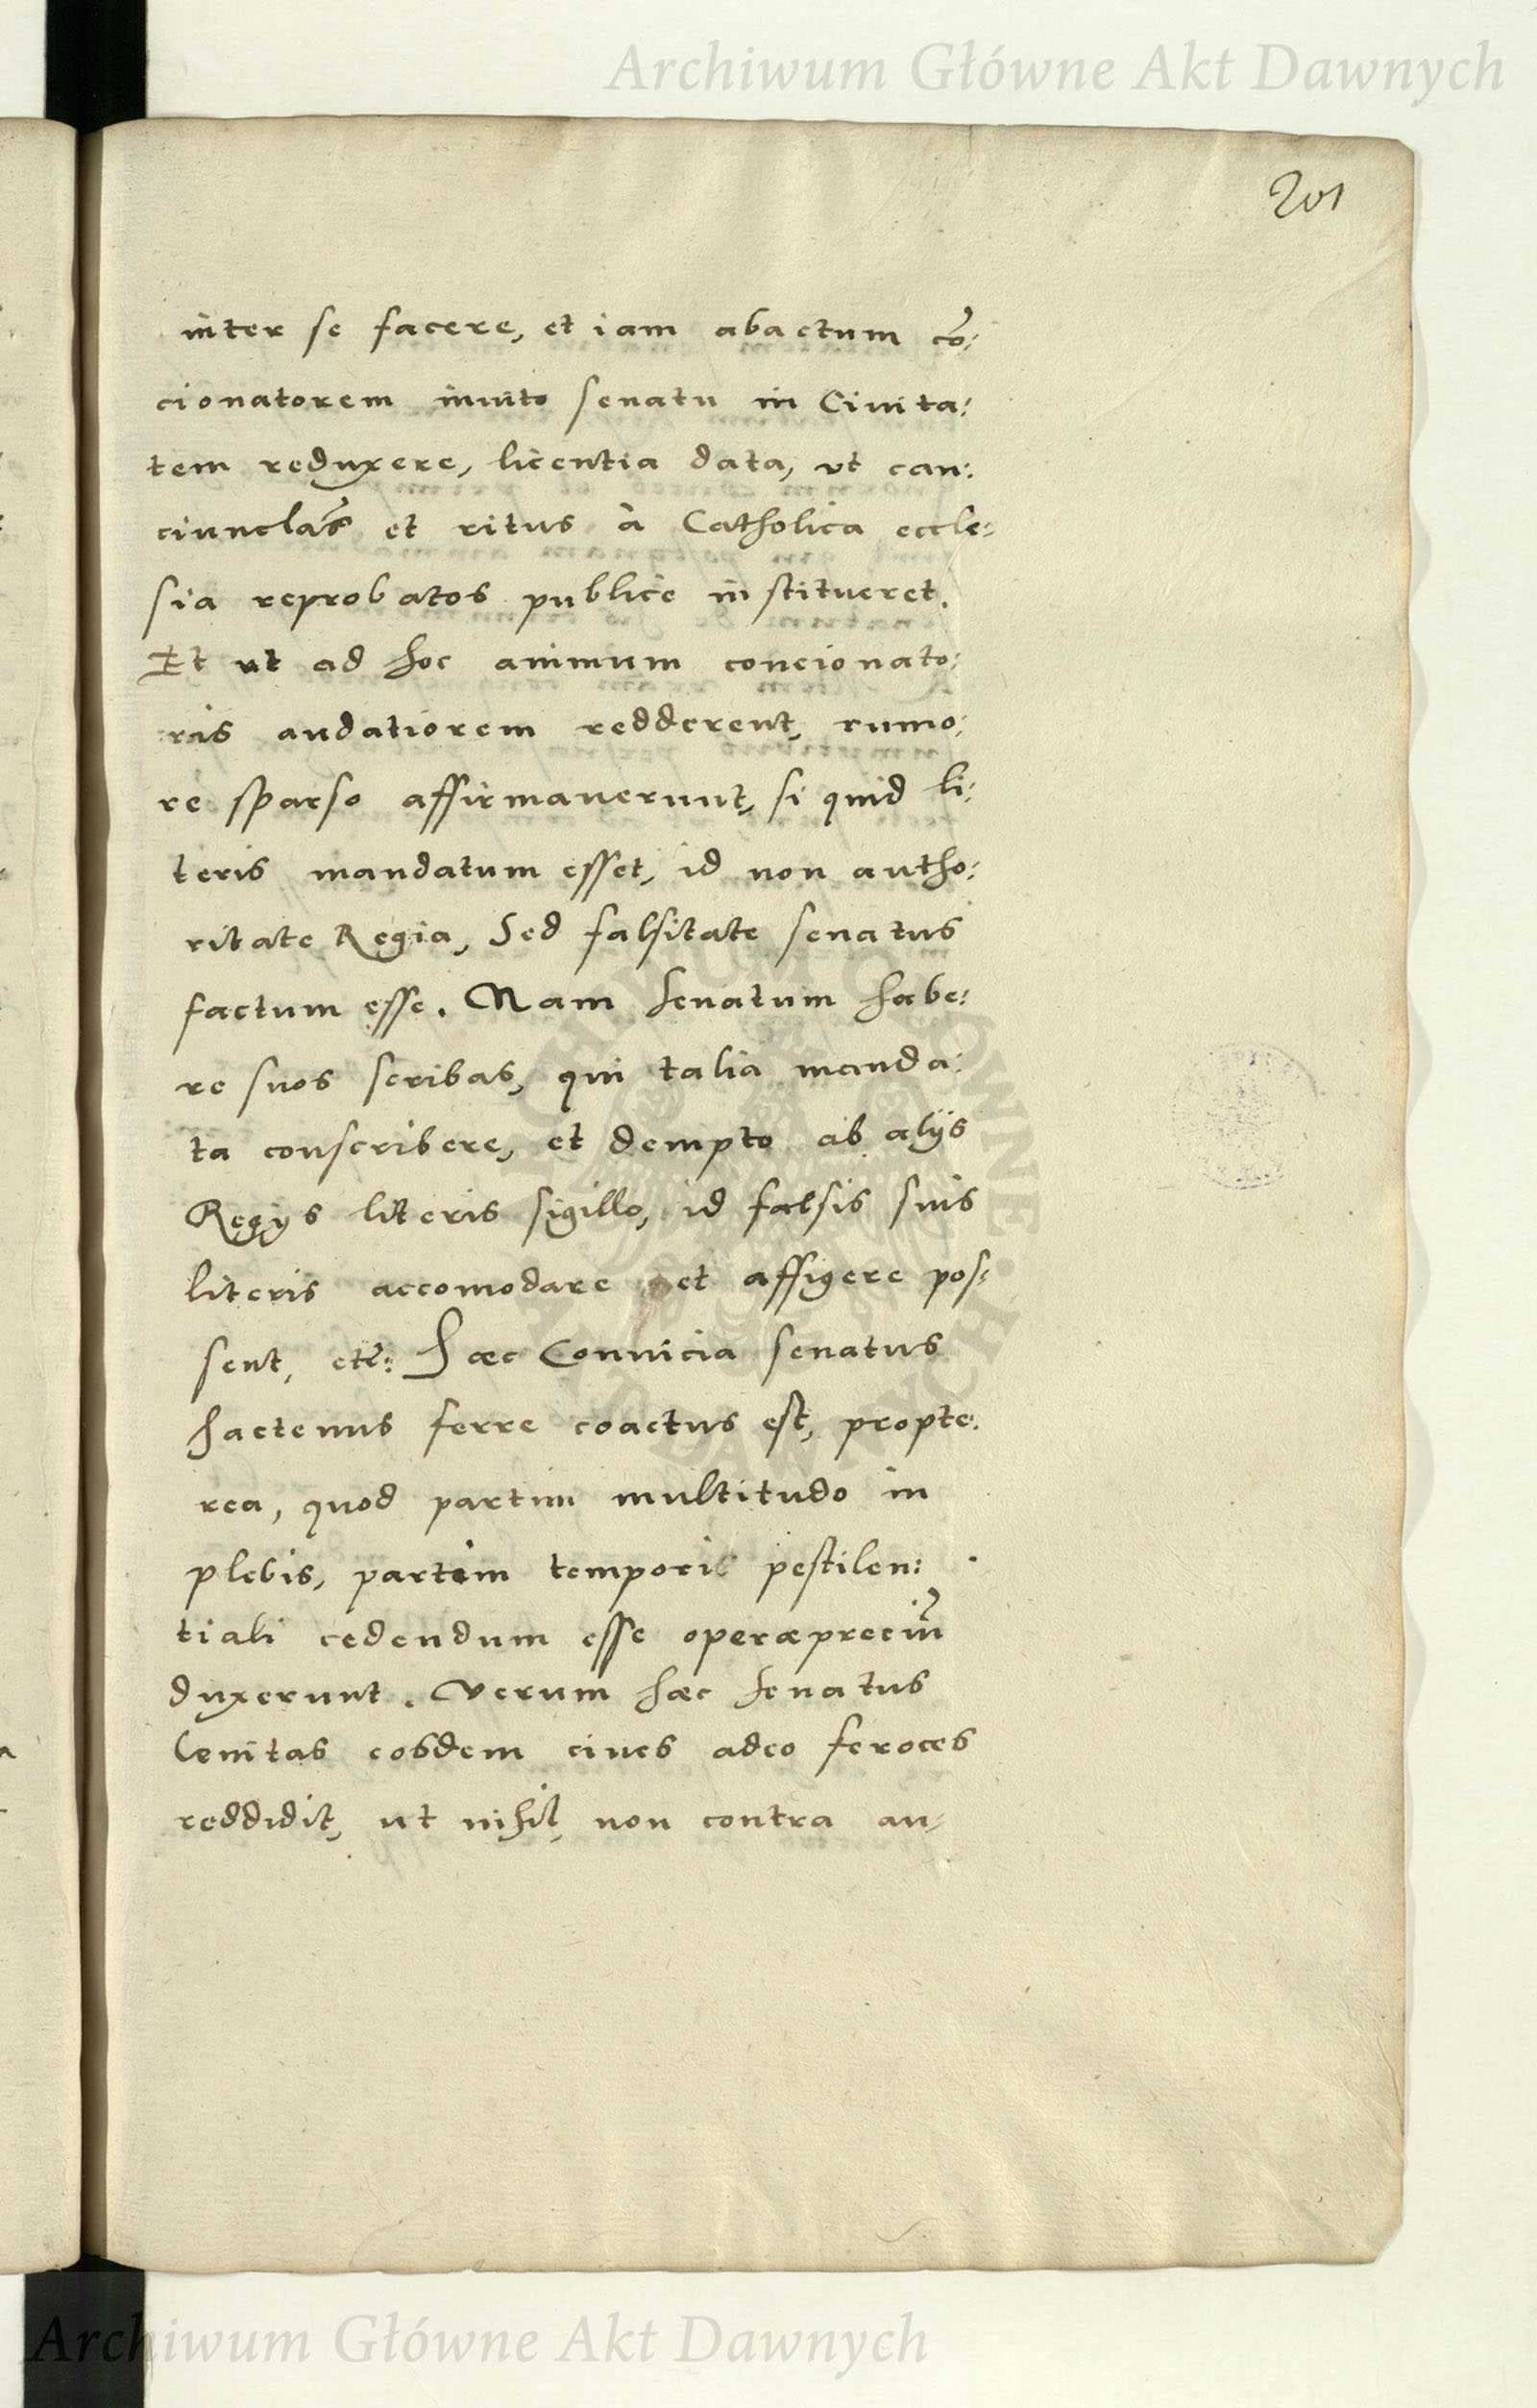 Archiwum Główne Akt Dawnych
201
inter se facere, et iam abactum cō:
cionatorem inuito senatu in Ciuita:
tem reduxere, licentia data, vt can:
ciunclas et ritus à Catholica eccle:
sia reprobatos publice institueret.
Et ut ad hoc animum concionato:
ris audatiorem redderent, rumo:
re sparso affirmauerunt, si quid li:
teris mandatum esset, id non autho:
ritate Regia, Sed falsitate senatus
factum esse. Nam Senatum habe:
re suos scribas, qui talia manda:
ta conscribere, et dempto ab alijs
Regijs literis sigillo, id falsis suis
literis accomodare et affigere pos:
sent, etc: Haec Conuicia senatus
hactenus ferre coactus est, propte:
rea, quod partim multitudo in
plebis, partim temporis pestilen:
tiali cedendum esse operæpreciū
duxerunt. Verum hæc Senatus
lenitas eosdem ciues adeo feroces
reddidit, ut nihil, non contra au:
Archiwum Główne Akt Dawnych